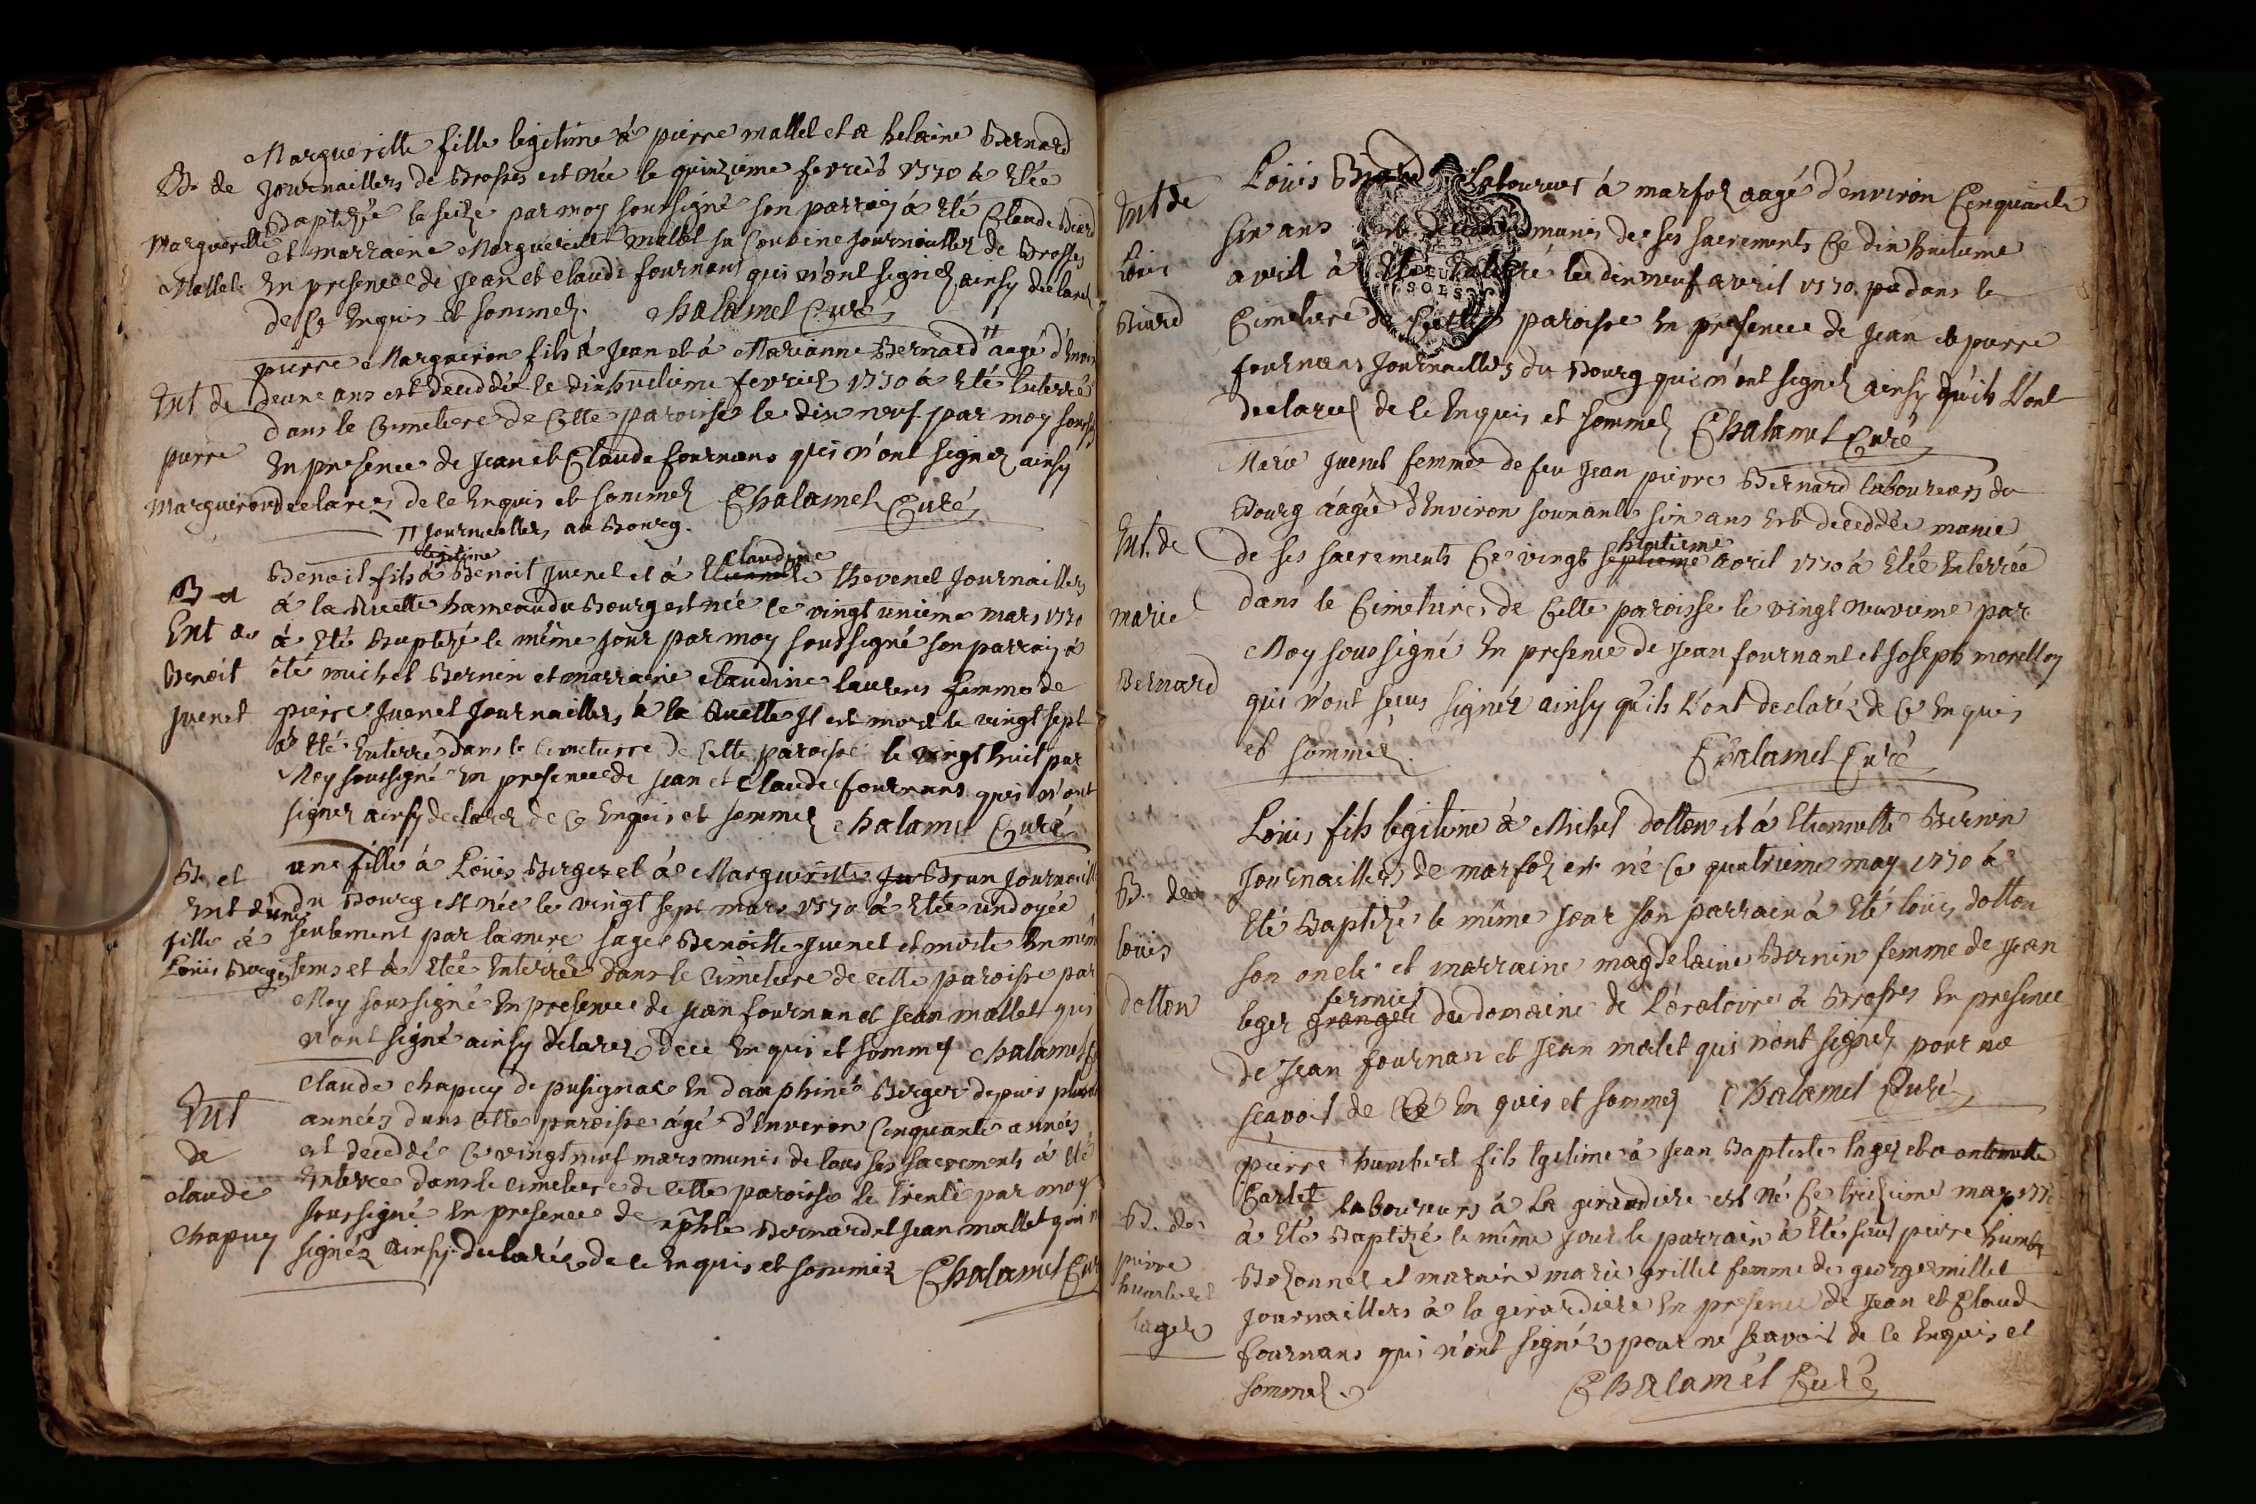 Margueritte fille legitime à pierre mallet et a helaine Bernard
B. de journailliers de Brosses est née le quinzieme fevrier 1770 a Etée
Baptizée le seize par moy soussigné son parrain à Eté Claude Biard
Margueritte et marraine Marguerite mallet sa Cousine journailler de Brosses
Mallet En presence de jean et claude fournans qui n'ont signez ainsy declarez
de ce Enquis et sommez. Chalamel Curé
pierre Margueron fils à Jean et à Marianne Bernard †† aagé d'Environ
Ent de deux ans est deceddé le dixhuitieme fevrier 1770 a Eté Enterré
dans le Cimetiere de Cette paroisse le dix neuf par moy soussigné
pierre En presence de jean et Claude fournans qui n'ont signez ainsy
Margueron declarez de ce Enquis et sommez Chalamel Curé
†† journailliers au Bourg.
legitime claudine
Benoit fils à Benoit juenet et à thevenet journailliers
B et à la Ruette hameau du Bourg est née le vingt unieme mars 1770
Ent de à Eté Baptizé le même jour par moy soussigné son parrain à
Benoit été michel Bernin et marraine claudine laurens femme de
juenet pierre juenet journailliers à la Ruette jl est mort le vingt sept
a Eté Enterré dans le Cimetierre de Cette paroisse le vingt huit par
Moy soussigné En presence de jean et Claude fournans qui n'ont
signez ainsy declarez de ce Enquis et sommez Chalamel Curé
B. et une fille à Loüis Berger et à Marguerite Brun journailliers
Ent d'une du Bourg est née le vingt sept mars 1770 a Etée undoyée
fille à seulement par la mere sage Benoitte juenet et morte En même
Loüis Berger tems et a Etée Enterrée dans le cimetiere de cette paroisse par
Moy soussigné En presence de jean fournan et jean mallet qui
n'ont signé ainsy delarez de ce Enquis et sommez Chalamel
Claude chapuy de pusignac En dauphiné Berger depuis plusieurs
Ent années dans Cette paroisse âgé d'Environ Cinquante années
de est deceddé Ce vingt neuf mars munis de tous ses sacrements à Eté
claude Enterré dans le cimetiere de cette paroisse le trente par moy
soussigné En presence de Bernard et Jean mallet qui n
chapuy signéz ainsy declaréz de ce Enquis et sommez Chalamel Curé
Loüis Biard Laboureur à marfoz aagé d'environ Cinquante
Ent de six ans est deceddé munis de ses sacrements Ce dix huitieme
Loüis avril à Eté Enterré le dix neuf avril 1770 dans le
Biard Cimetiere de Cette paroisse En presence de Jean et pierre
fournans journailliers du Bourg qui n'ont signez ainsy qu'ils L'ont
declarez de ce Enquis et sommez Chalamel Curé
Marie juenet femme de feu Jean pierre Bernard laboureurs du
Bourg aagée d'Environ soixante six ans Est deceddée munie
huitieme
Ent. de de ses sacrements Ce vingt septieme avril 1770 à Etée Enterrée
dans le Cimetiere de Cette paroisse le vingt neuvieme par
marie Moy soussigné En presence de Jean fournant et Joseph
Bernard qui n'ont sçeus signéz ainsy qu'ils L'ont declaréz de Ce Enquis
et sommez. Chalamel Curé
Loüis fils legitime à Michel dotton et à Etiennette Bernin
B. de journailliers de marfoz est né Ce quatrieme may 1770 à
loüis Eté Baptizé le même jour son parrain à Eté loüis dotton
son oncle et marraine magdelaine Bernin femme de Jean
dotton fermier
leger granger du domaine de L'oratoire à Brosses En presence
de Jean fournan et Jean malet qui n'ont signez pour ne
sçavoir de Ce Enquis et sommez Chalamel Curé
pierre humbert fils legitime à Jean Baptiste lager et a antoinette
Carlet laboureurs à La girardiere est né Ce treizieme may 1770
B. de à Eté Baptizé le même jour le parrain à Eté pierre
pierre Bozonnet et maraine marie grillet femme de george millet
humbert journailliers à la girardiere En presence de Jean et Claude
lager fournans qui n'ont signéz pour ne sçavoir de ce Enquis et
sommez Chalamél Curé